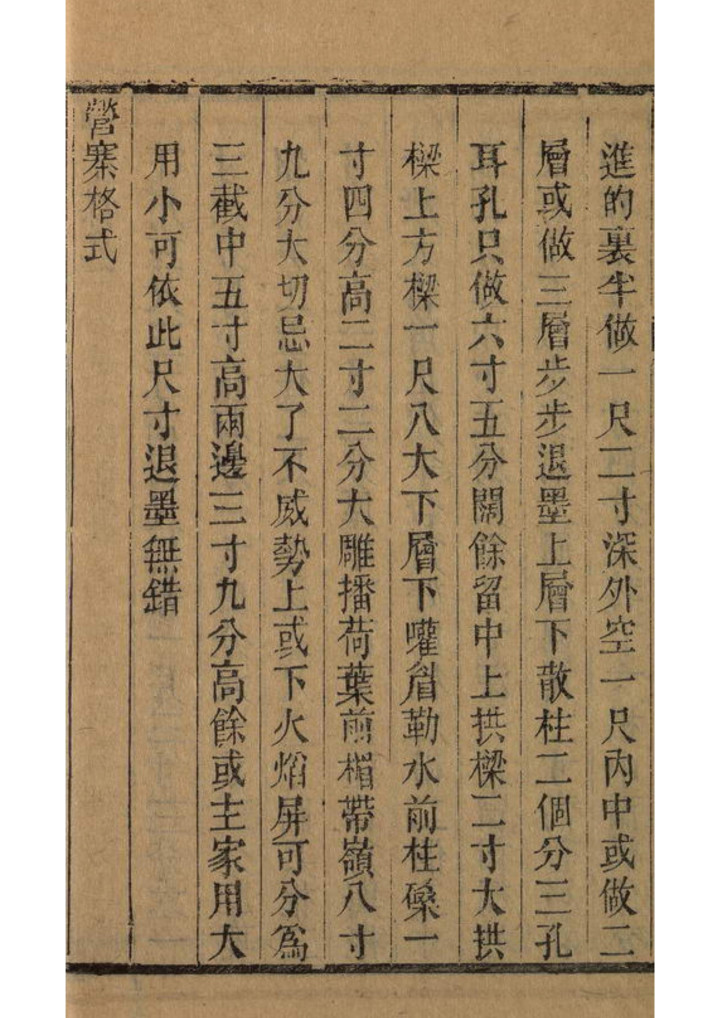 進的裏半做一尺二寸深外空一尺內中或做二
層或做三層步步退墨上層下散柱二個分三孔
耳孔只做六寸五分闊餘留中上拱樑二寸大拱
樑上方樑一尺八大下層下嚾眉勒水前柱磉一
寸四分高二寸二分大雕播荷葉前楣帶嶺八寸
九分大切忌大了不威勢上或下火熖屏可分爲
三截中五寸高兩邊三寸九分高餘或主家用大
用小可依此尺寸退墨無錯
營寨格式